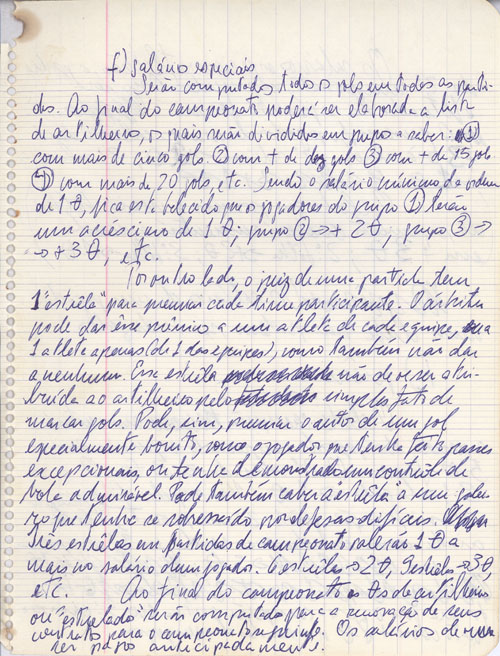 f) salário especiais
Serão computados todos os gols em todas as parti-
das. Ao final do campeonato poderá ser elaborada a lista
de artilheiros, os quais serão divididos em grupo a saber: ①
com mais de cinco gols ② com + de dez gols ③ com + de 15 gols
④ com mais de 20 gols, etc. Sendo o salário mínimo da ordem
de 1 θ, fica estabelecido que os jogadores do grupo ① terão
um acréscimo de 1 θ; grupo ② → + 2 θ, grupo ③ →
→ + 3 θ, etc.
Por outro lado, o juiz de uma partida tem
1 "estrêla" para premiar cada time participante. O árbitro
pode dar êsse prêmio a um atleta de cada equipe, ou a
1 atleta apenas (de 1 das equipes), como também não dar
a nenhum. Essa estrêla não deve ser atri-
buída ao artilheiro pelo simples fato de
marcar gols. Pode, sim, premiar o autor de um gol
especialmente bonito, como o jogador que tenha feito passes
excepcionais, ou tenha demonstrado um contrôle de
bola admirável. Pode também caber a "estrêla" a um golei-
ro que tenha se sobressaído por defesas difíceis.
Três estrêlas em partidas de campeonato valerão 1 θ a
mais no salário de um jogador. 6 estrêlas → 2 θ, 9 estrêlas → 3 θ,
etc. Ao final do campeonato os θs de artilheiro
ou "estrelado" serão computados para a renovação de seus
contrato para o campeonato seguinte. Os salários devem
ser pagos antecipadamente.